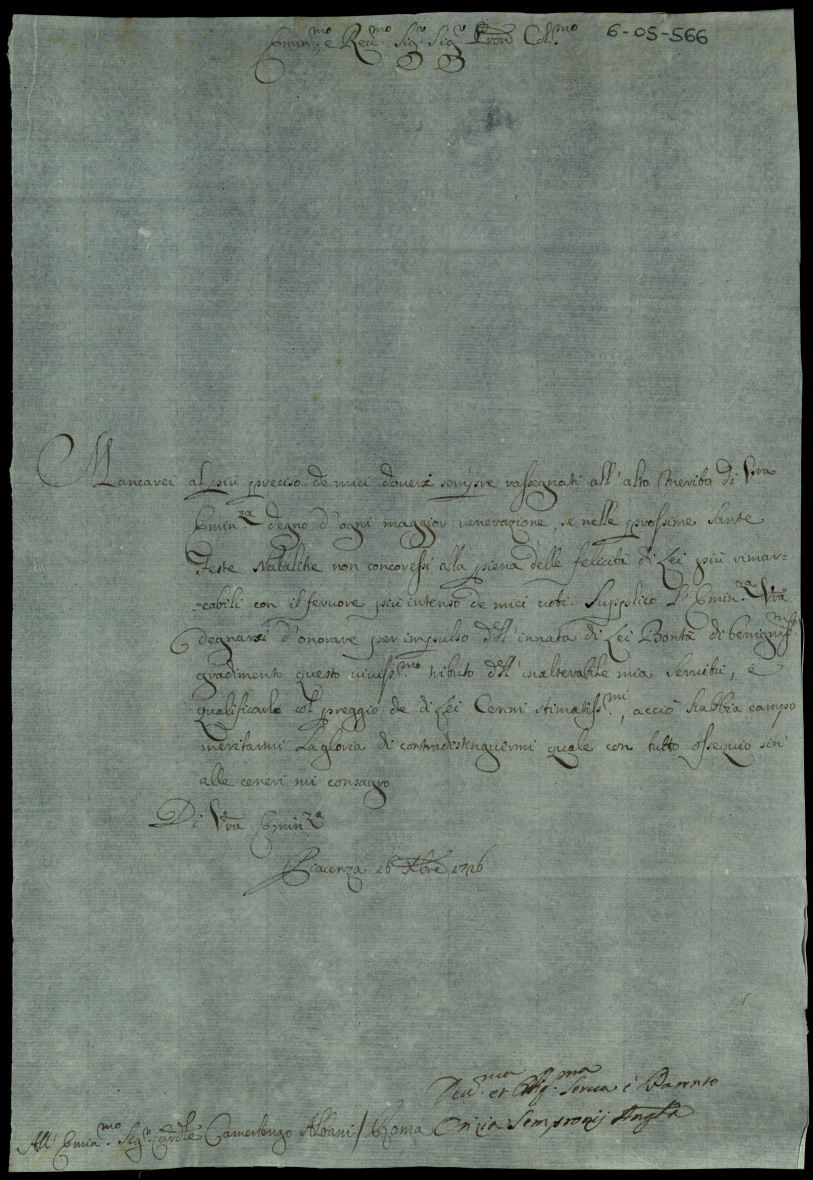 Emin.mo e Reu.mo Sig.r Sig.r Pron Col.mo
6-05-566
Mancarei al più preciso de miei doveri sempre rassegnati all' alto Merito di V.ra
Emin.za degno d' ogni maggior venerazione, se nelle prossime Sante
Feste Natalitie non concoressi alla piena delle felicità di Lei più rimar-
-cabili con il fervore più intenso de miei voti. Supplico l' Emin.za V.ra
degnarsi d' onorare per impulso dell' innata di Lei Bontà di benigniss.mo
gradimento questo viviss.mo tributo dell' inalterabile mia Servitù, e
qualificarlo col preggio de di Lei Cenni stimatiss.mi, acciò habbia campo
meritarmi la gloria di contradistinguermi quale con tutto ossequio sin'
alle ceneri mi consagro
Di V.ra Emin.za
Piacenza 16 Xbre 1726
Deu.ma et Obg.ma Serua e Parente
All' Emin.mo Sig.r Cardle Camerlengo Albani / Roma